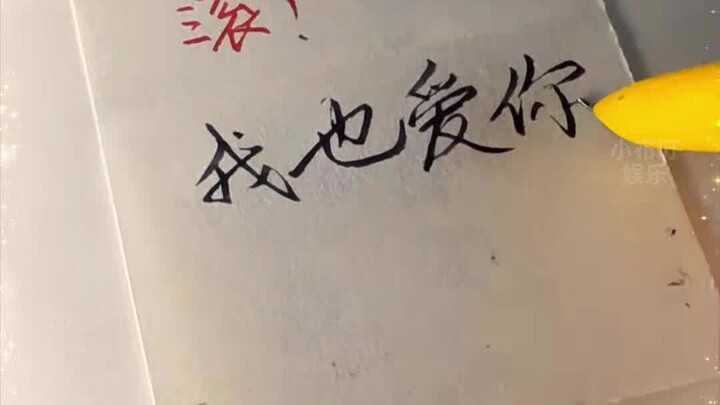 滚!
我也爱你
娱乐